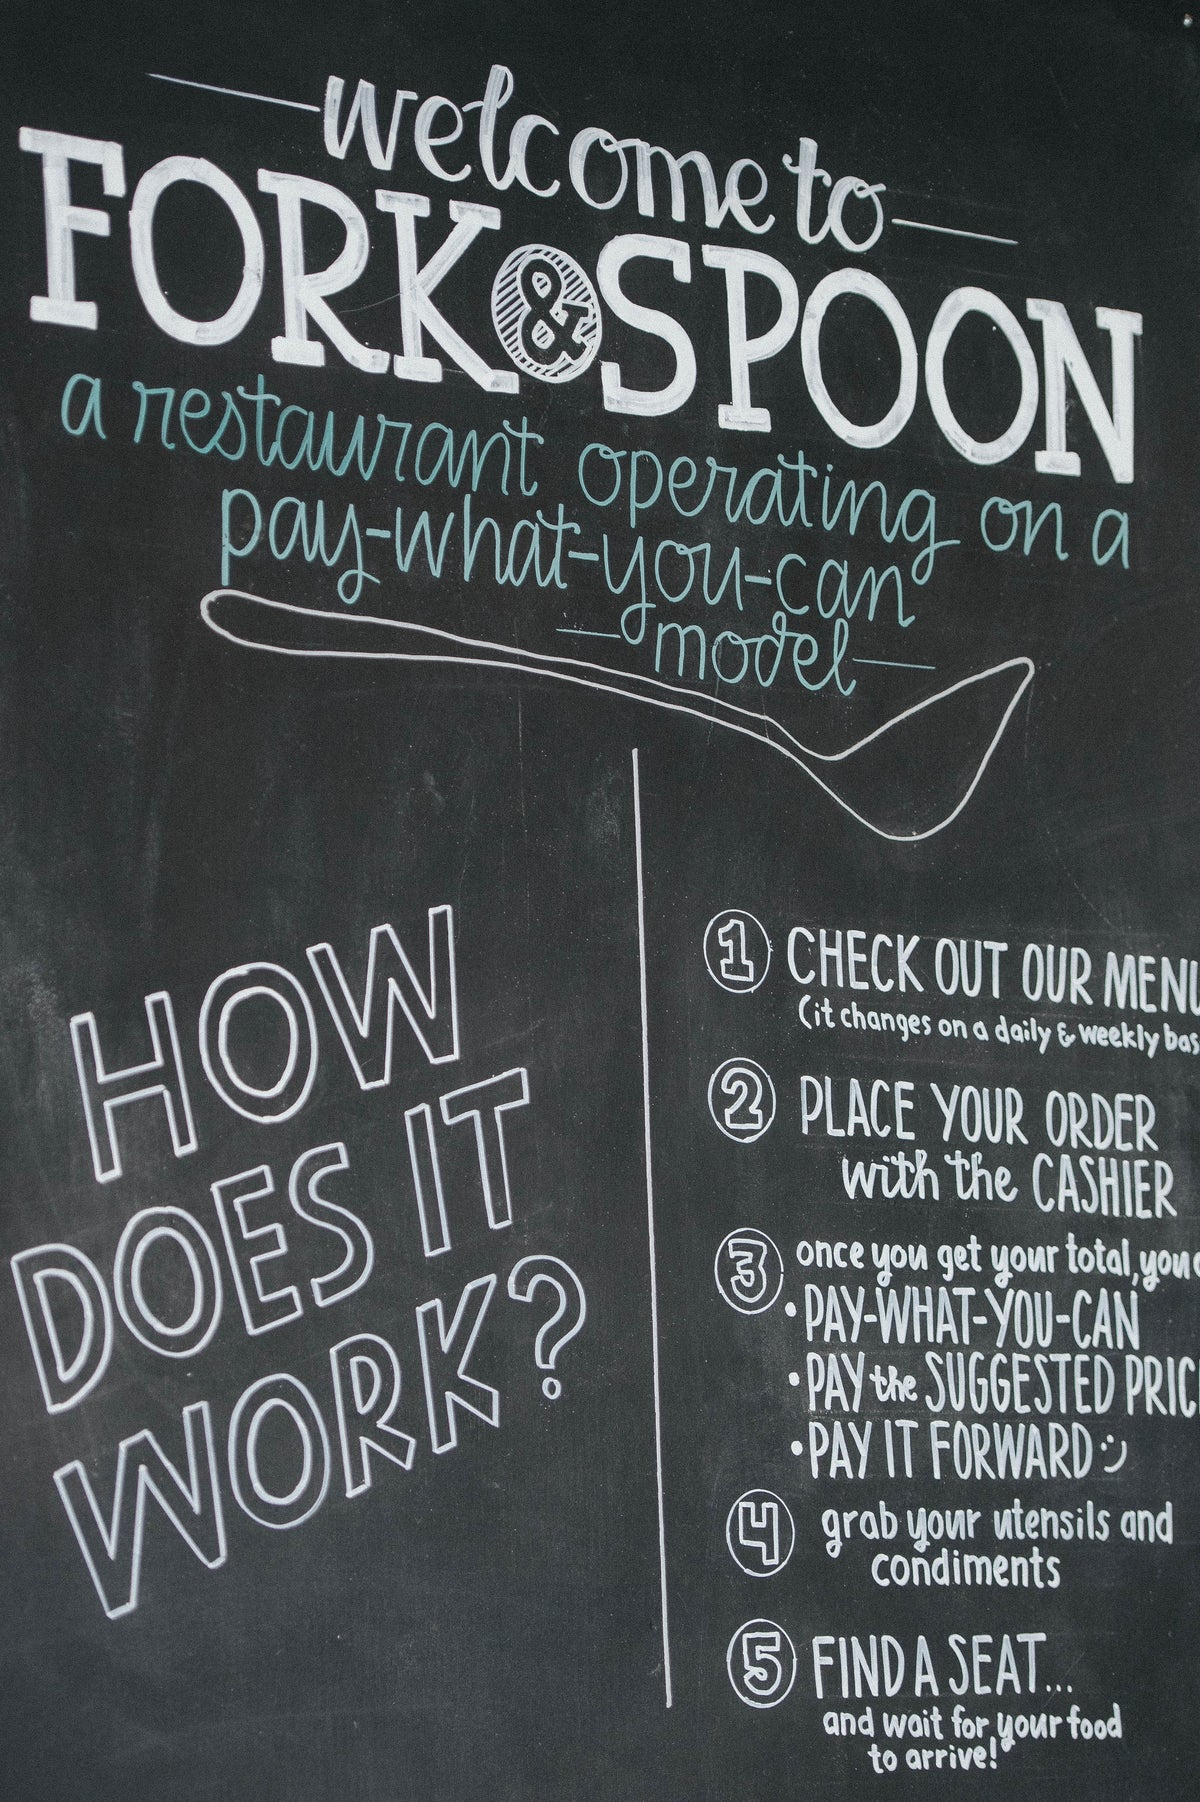 welcome to
FORK & SPOON
a restaurant operating on a
pay-what-you-can
model
HOW
DOES IT
WORK?
1 CHECK OUT OUR MENU
(it changes on a daily & weekly bas
2 PLACE YOUR ORDER
with the CASHIER
3 once you get your total, you
• PAY-WHAT-YOU-CAN
• PAY the SUGGESTED PRIC
• PAY IT FORWARD :)
4 grab your utensils and
condiments
5 FIND A SEAT...
and wait for your food
to arrive!